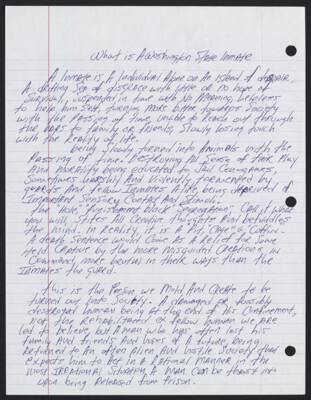 What is A Washington State Inmate
A Inmate is A Individual Alone on An Island of despair,
A drifting Sea of disgrace with little or no hope of
Survival, suspended in time with No Meaning, helpless
to help him Self, turning more bitter towards Society
with the Passing of time, unable to Reach out through
the bars to family or friends, Slowly losing touch
with the Reality of life.
being slowly turned into Animals with the
Passing of time. Destroying All Sense of fair Play
And Morality being Subjected to
Sometimes cruelly And Violently tormented by
guards And fellow Inmates Alike, being deprived of
Important Sensory Contact And Stimuli.
The Hole, "Punishment block" "Segregation" Call it what
you will, Stifles All Creative thoughts And befuddles
the mind. In Reality, it is A Pit, Cage, A Coffin.
A death Sentence would Come As A Relief for Some
Held Captive by the more Misguided Creatures in
Command, more brutal in their ways than the
Inmates they guard.
This is the Person we Mold And Create to be
turned out into Society. A damaged or possibly
destroyed human being at the end of his Confinement,
Not the Rehabilitated of fellow human we are
led to believe, but A man who has often lost his
family And friends And hopes of A future, being
Returned to An often Alien And hostile Society that
Expects him to Act in A Rational manner in the
Most irrational Situation A man Can be thrust into
upon being Released from Prison.